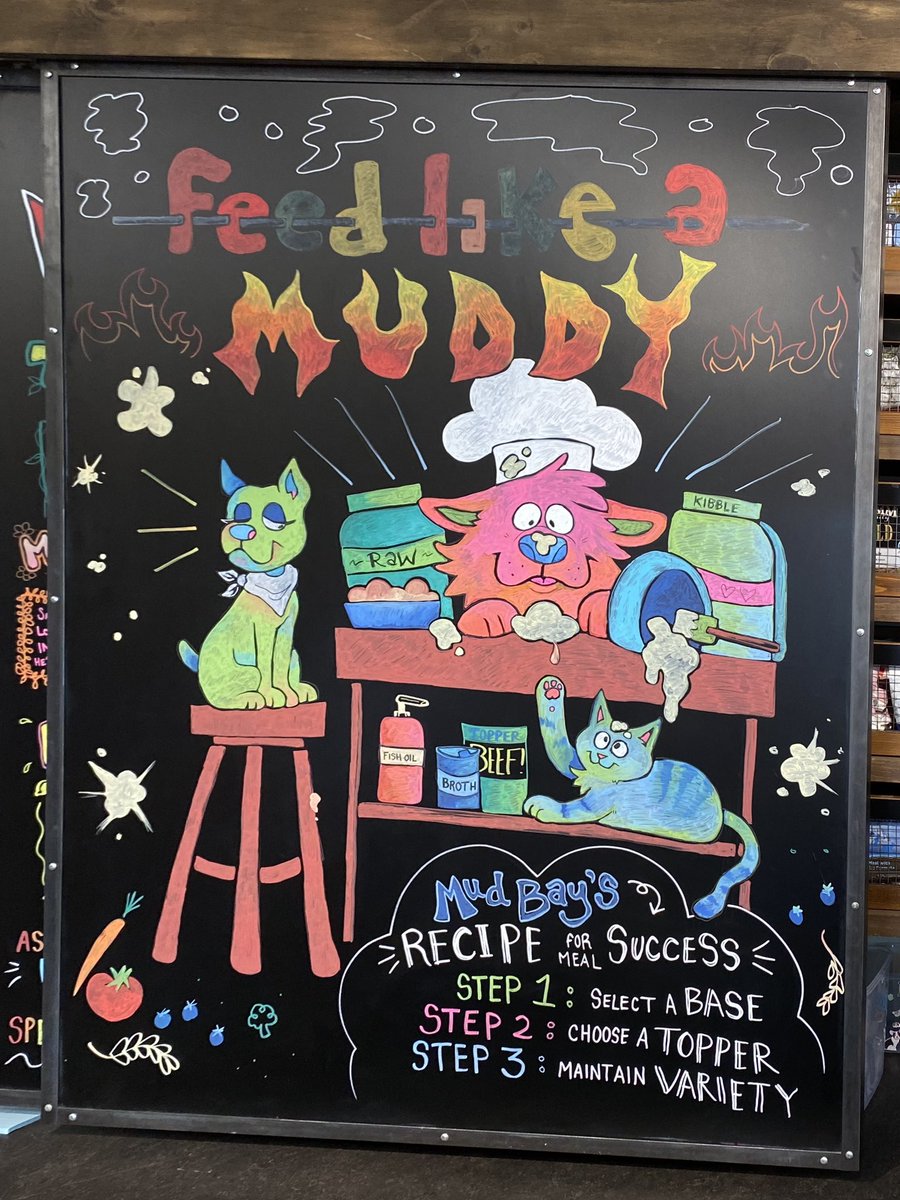 feed like a
MUDDY
~ RAW ~
KIBBLE
FISH OIL
BROTH
TOPPER
BEEF!
MUD BAY'S
RECIPE FOR MEAL SUCCESS
STEP 1: SELECT A BASE
STEP 2: CHOOSE A TOPPER
STEP 3: MAINTAIN VARIETY